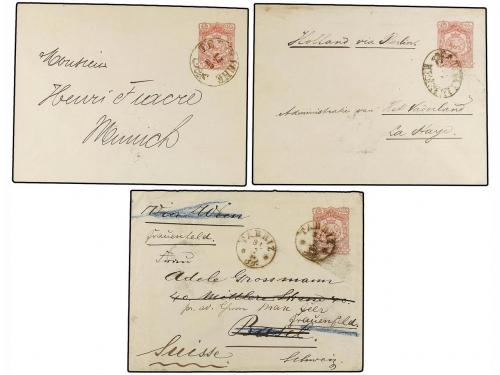 Monsieur
Henri Fiacre
Munich
Holland via Berlin
Administratie van Het Vaderland
La Haye.
Via Wien
Frauenfeld.
TABRIZ
TABRIZ
Frau
Adele Grossmann
40. Mittlere Strasse 40.
pr. ad. Herrn Max
Frauenfeld.
Basel
Suisse.
Schweiz.